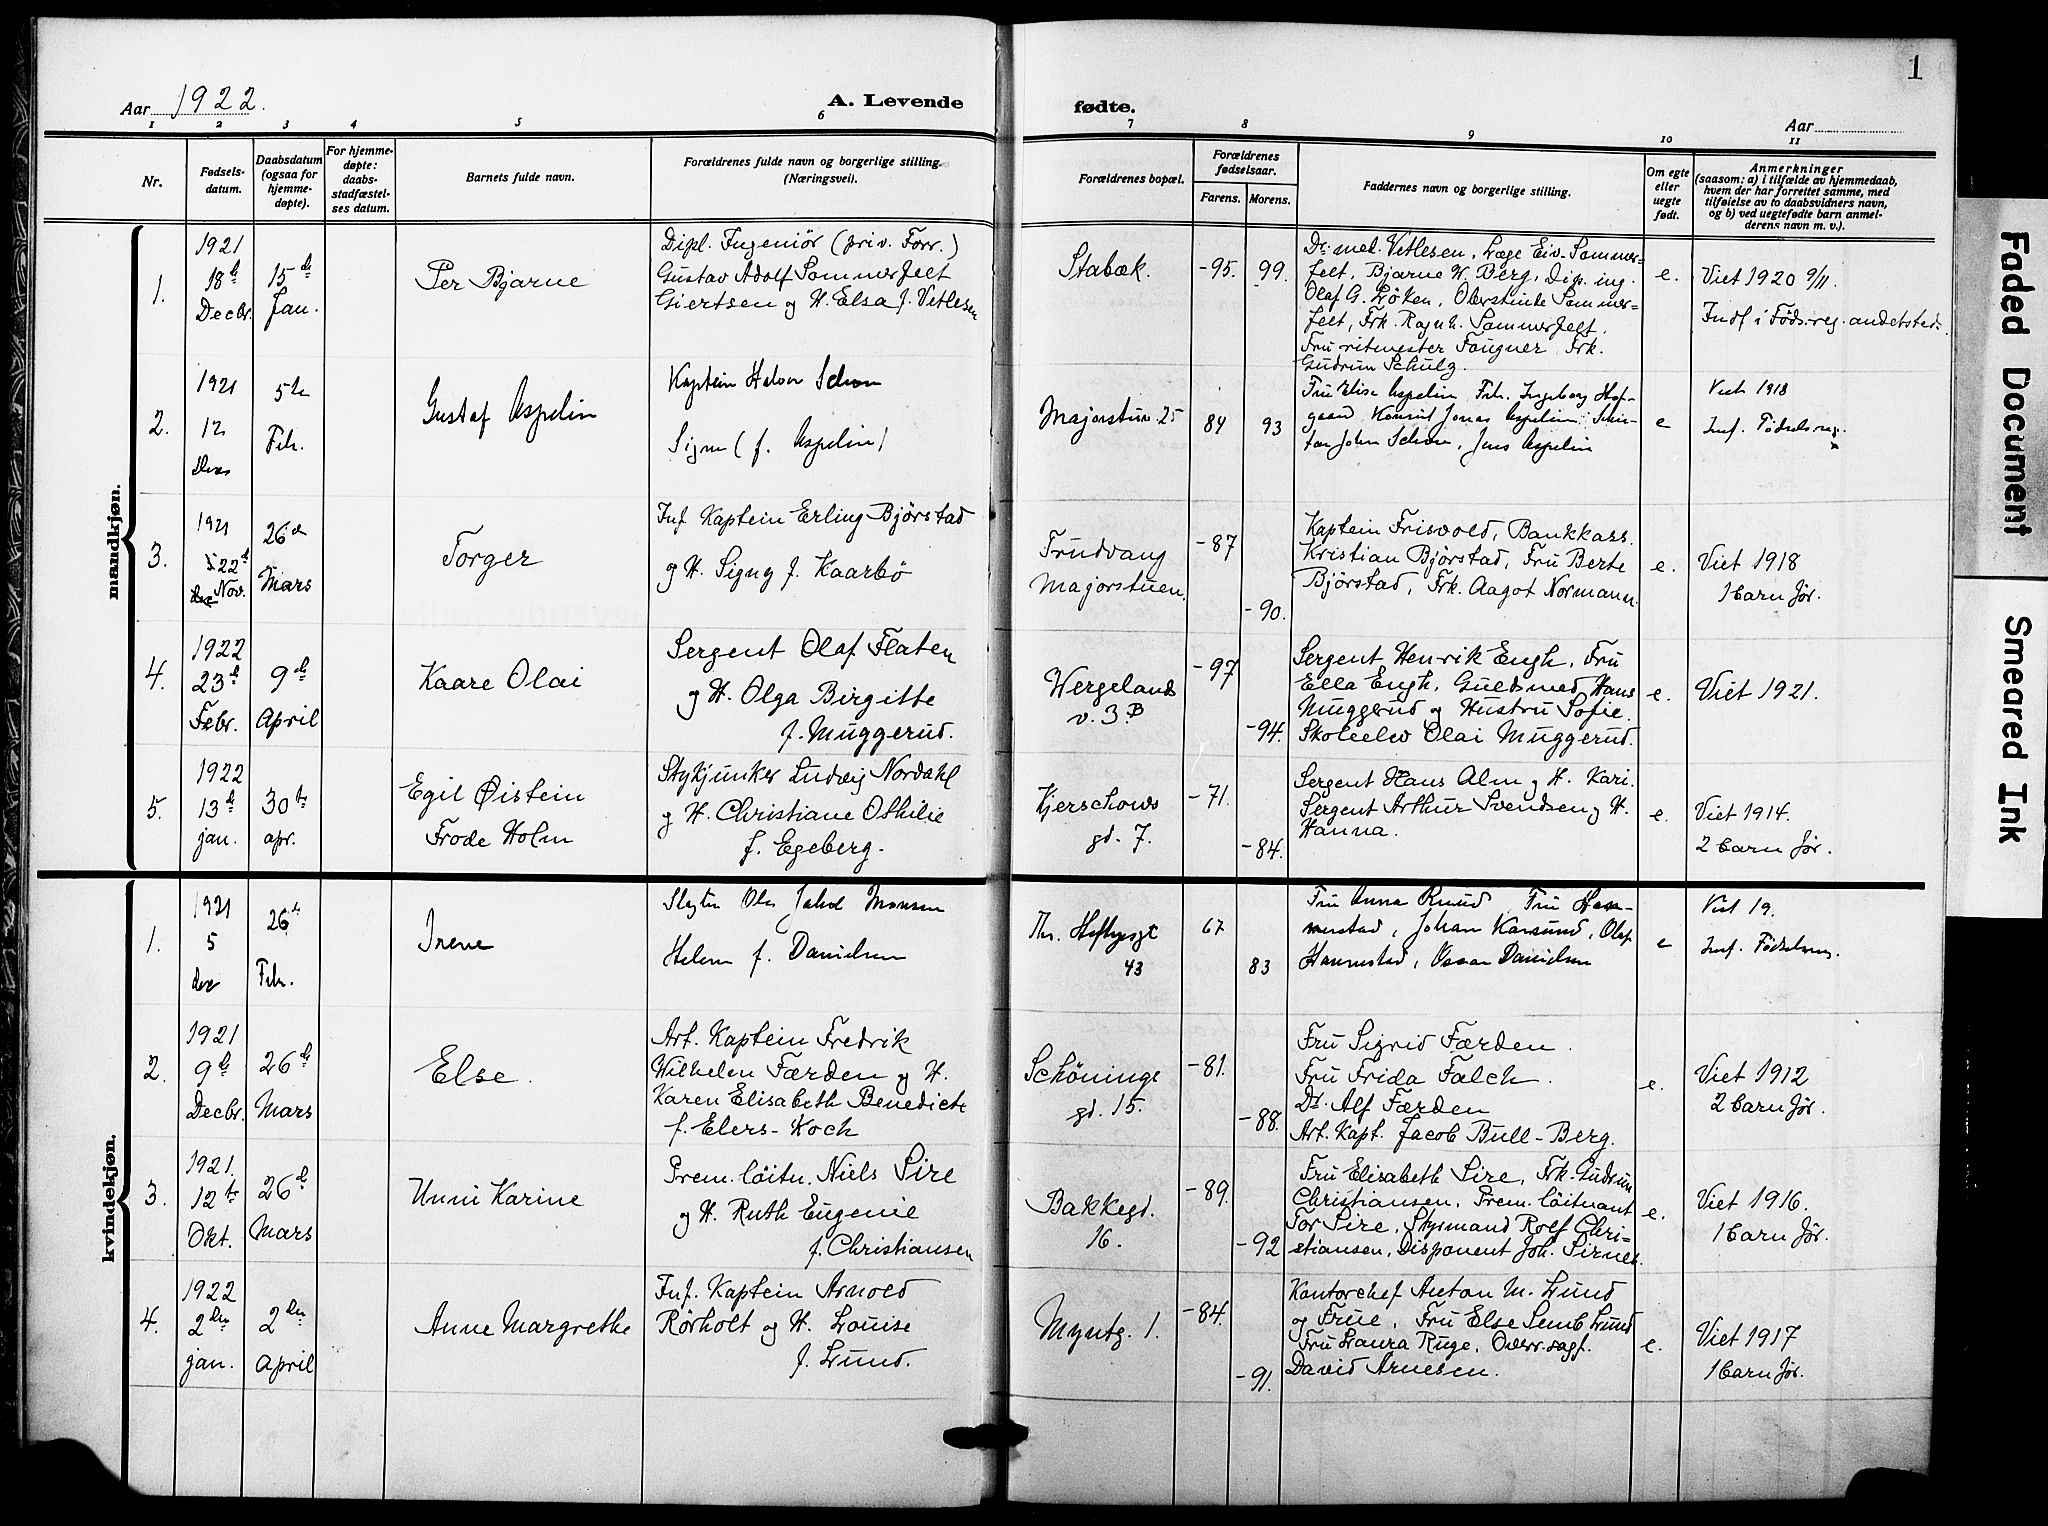 1
Aar 1922.
A. Levende
fødte.
Aar
1 2 3 4 5 6 7 8 9 10 11
Nr.
Fødsels-
datum.
Daabsdatum
(ogsaa for
hjemme-
døpte).
For hjemme-
døpte:
daabs-
stadfæstel-
ses datum.
Barnets fulde navn.
Forældrenes fulde navn og borgerlige stilling.
(Næringsvei).
Forældrenes bopæl.
Forældrenes
fødselsaar.
Farens. Morens.
Faddernes navn og borgerlige stilling.
Om egte
eller
uegte
født.
Anmerkninger
(saasom: a) i tilfælde av hjemmedaab,
hvem der har forrettet samme, med
tilføielse av to daabsvidners navn,
og b) ved uegtefødte barn anmel-
derens navn m. v.).
mandkjøn.
1.
1921
18de
Decbr.
15de
Jan.
Per Bjarne
Dipl. Ingeniör (priv. Forr.)
Gustav Adolf Sommerfelt
Giertsen og H. Elsa f. Vetlesen
Stabæk.
-95. 99.
Dr. med. Vetlesen, Læge Eiv. Sommer-
felt, Bjarne W. Berg, Dipl. ing.
Olaf G. Löken, Oberstinde Sommer-
felt, Frk. Ragnh. Sommerfelt.
Fru ritmester Fougner, Frk.
Gudrun Schulz.
e.
Viet 1920 9/11
Indf i Föds.reg. andetsteds.
2.
1921
12
Des
5te
Feb.
Gustaf Aspelin
Kaptein Halvor
Signe (f. Aspelin)
Majorstuv. 25
84 93
Fru Elise Aspelin Frk. Ingeborg
Konsul Jonas Aspelin
John Jens Aspelin
e
Viet 1918
Inf. Födselsreg.
3.
1921
22de
Nov.
26de
Mars
Torger
Inf. Kaptein Erling Björstad
og H. Signy f. Kaarbö
Trudvang
Majorstuen.
-87
-90.
Kaptein Frisvold, Bankkass.
Kristian Björstad, Fru Berte
Björstad, Frk. Aagot Normann.
e.
Viet 1918
1 barn för.
4.
1922
23de
Febr.
9de
April
Kaare Olai
Sergent Olaf Flaten
og H. Olga Birgitte
f. Muggerud.
Wergelands
v. 3B
-97
-94.
Sergent Henrik Engh, Fru
Ella Engh, Guldsmed Hans
Muggerud og Hustru Sofie.
Skoleelev Olai Muggerud.
e.
Viet 1921.
5.
1922
13de
jan.
30te
apr.
Egil Øistein
Frode Holm
Stykjunker Ludvig Nordahl
og H. Christiane Othilie
f. Egeberg.
Kjerschows
gd. 7.
-71.
-84.
Sergent Hans Alm og H. Kari.
Sergent Arthur Svendsen og H.
Hanna.
e.
Viet 1914.
2 barn för.
kvindekjøn.
1.
1921
5
des
26de
Feb.
Irene
Jakob Monsen
Helene f. Danielsen
Th. Heftyesgt
43
67
83
Fru Anna Ruud Fru Ham-
merstad, Johan Karsund, Olaf
Hammerstad, Oscar Danielsen
e
Viet 19.
Inf. Födselsreg.
2.
1921
9de
Decbr.
26de
Mars
Else.
Art. Kaptein Fredrik
Wilhelm Færden og H.
Karen Elisabeth Benedicte
f. Elers-Koch
Schönings
gd. 15.
-81.
-88.
Fru Sigrid Færden.
Fru Frida Falch.
Dr. Alf Færden
Art. Kapt. Jacob Bull-Berg.
e.
Viet 1912
2 barn för.
3.
1921.
12te
Okt.
26de
Mars
Unni Karine
Prem. löitn. Niels Sire
og H. Ruth Eugenie
f. Christiansen
Bakkegd.
16.
-89.
-92
Fru Elisabeth Sire, Frk. Gudrun
Christiansen, Prem. löitnant
Tor Sire, Styrmand Rolf Chri-
stiansen, Disponent Joh. Sirnes.
e.
Viet 1916.
1 barn för.
4.
1922
2den
jan.
2den
April
Anne Margrethe
Inf. Kaptein Arnold
Rörholt og H. Louise
f. Lund.
Myntg. 1.
-84.
-91.
Kontorchef Anton M. Lund
og Frue, Fru Else Semb Lund
Fru Laura Ruge, Overr.sagf.
David Arnesen.
e.
Viet 1917
1 barn för.
Faded Document
Smeared Ink